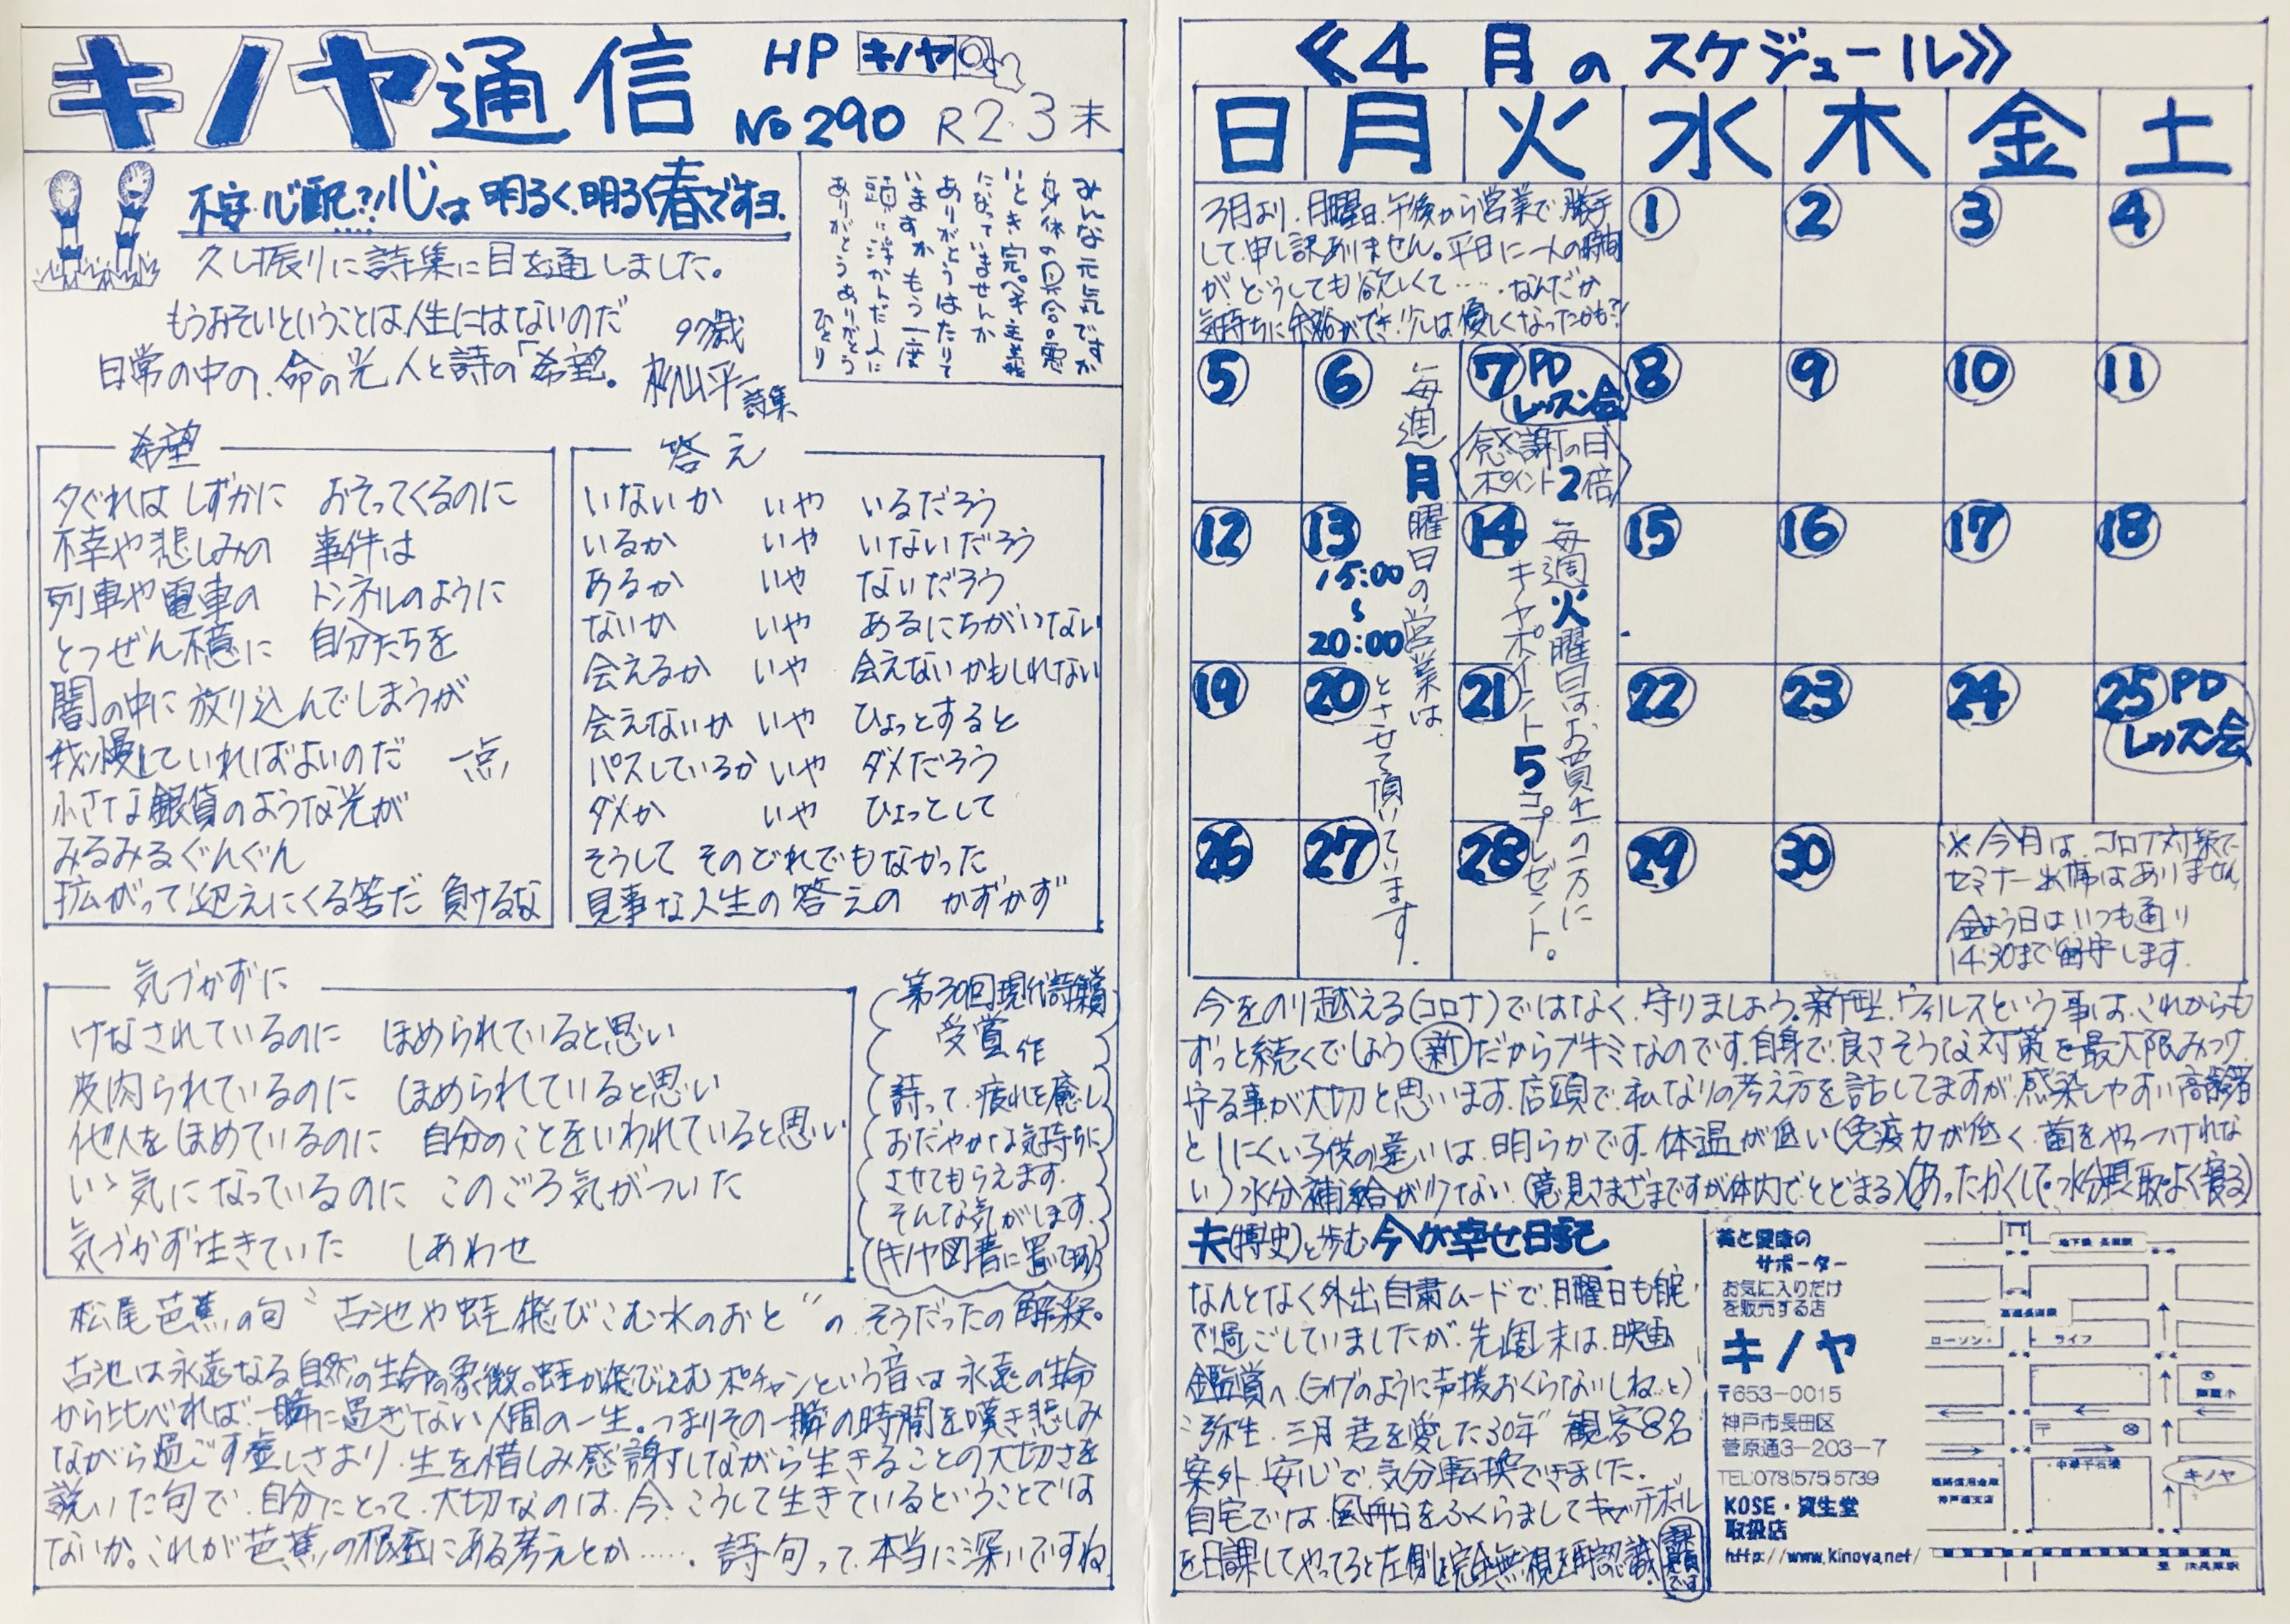 キノヤ通信
HP キノヤ
No 290 R2.3末
不安・心配?心は明るく、明るく春ですヨ.
久し振りに詩集に目を通しました。
もうおそいということは、人生にはないのだ
日常の中の、命の光 人と詩の「希望。
97歳
杉山平一詩集
みんな元気ですか
身体の具合。悪
いとき完ペキ主義
になっていませんか
ありがとうはたりて
いますか もう一度
頭に浮かんだ人に
ありがとうありがとう
ひとり
希望
夕ぐれは しずかに おそってくるのに
不幸や悲しみの 事件は
列車や電車の トンネルのように
とつぜん不意に 自分たちを
闇の中に 放り込んでしまうが
我慢していればよいのだ 一点
小さな銀貨のような光が
みるみるぐんぐん
拡がって迎えにくる筈だ 負けるな
答え
いないか いや いるだろう
いるか いや いないだろう
あるか いや ないだろう
ないか いや あるにちがいない
会えるか いや 会えないかもしれない
会えないか いや ひょっとすると
パスしているか いや ダメだろう
ダメか いや ひょっとして
そうして そのどれでもなかった
見事な人生の答えの かずかず
気づかずに
けなされているのに ほめられていると思い
皮肉られているのに ほめられていると思い
他人をほめているのに 自分のことをいわれていると思い
いゝ気になっているのに このごろ気がついた
気づかず生きていた しあわせ
第30回現代詩集賞
受賞作
詩って、疲れを癒し
おだやかな気持ちに
させてもらえます.
そんな気がします.
(キノヤ図書に置いてます)
松尾芭蕉の句 〝古池や蛙飛びこむ水のおと〟の そうだったの解釈。
古池は永遠なる自然の生命の象徴。蛙が飛び込むポチャンという音は永遠の生命
から比べれば、一瞬に過ぎない人間の一生。つまりその一瞬の時間を嘆き悲しみ
ながら過ごす虚しさより、生を惜しみ感謝しながら生きることの大切さを
説いた句で、自分にとって、大切なのは、今、こうして生きているということでは
ないか。これが芭蕉の根底にある考えとか……. 詩句って、本当に深いですね
《4月のスケジュール》
日 月 火 水 木 金 土
3月より、月曜日、午後から営業で、勝手
して、申し訳ありません。平日に一人の時間
がどうしても欲しくて……. なんだか
気持ちに余裕ができ、少しは優しくなったかも?!
1 2 3 4
5 6 7 PDレッスン会 8 9 10 11
感謝の日
ポイント2倍
12 13 14 15 16 17 18
15:00
〜
20:00
毎週月曜日の営業は、
とさせて頂いています.
毎週火曜日はお買上の方に
キノヤポイント5コプレゼント。
19 20 21 22 23 24 25 PDレッスン会
26 27 28 29 30
※今月は、コロナ対策で
セミナー出席はありません
金よう日はいつも通り
14:30まで留守します.
今をのり越える(コロナ)ではなく、守りましょう。新型ヴィルスという事は、これからも
ずっと続くでしょう 新 だからブキミなのです.自身で、良さそうな対策を最大限みつけ、
守る事が大切と思います.店頭で、私なりの考え方を話してますが、感染しやすい高齢者
としにくい子供の違いは、明らかです.体温が低い(免疫力が低く、菌をやっつけれな
い)水分補給が少ない.(意見さまざまですが体内でとどまる)(あったかくして・水分摂取・よく寝る)
夫(博史)と歩む今が幸せ日記
なんとなく外出自粛ムードで、月曜日も自宅
で過ごしていましたが、先週末は、映画
鑑賞へ (ライブのように声援おくらないしね、と)
〝弥生、三月 君を愛した30年〟観客8名
案外、安心で、気分転換できました.
自宅では、風船をふくらましてキャッチボール
を日課してやってると左側を完全無視を再認識.
美と健康の
サポーター
お気に入りだけ
を販売する店
キノヤ
〒653-0015
神戸市長田区
菅原通3-203-7
TEL078(575)5739
KOSE・資生堂
取扱店
http://www.kinoya.net/
地下鉄 長田駅
高速長田駅
ローソン ライフ
〒
キノヤ
神戸西支店
至 JR兵庫駅